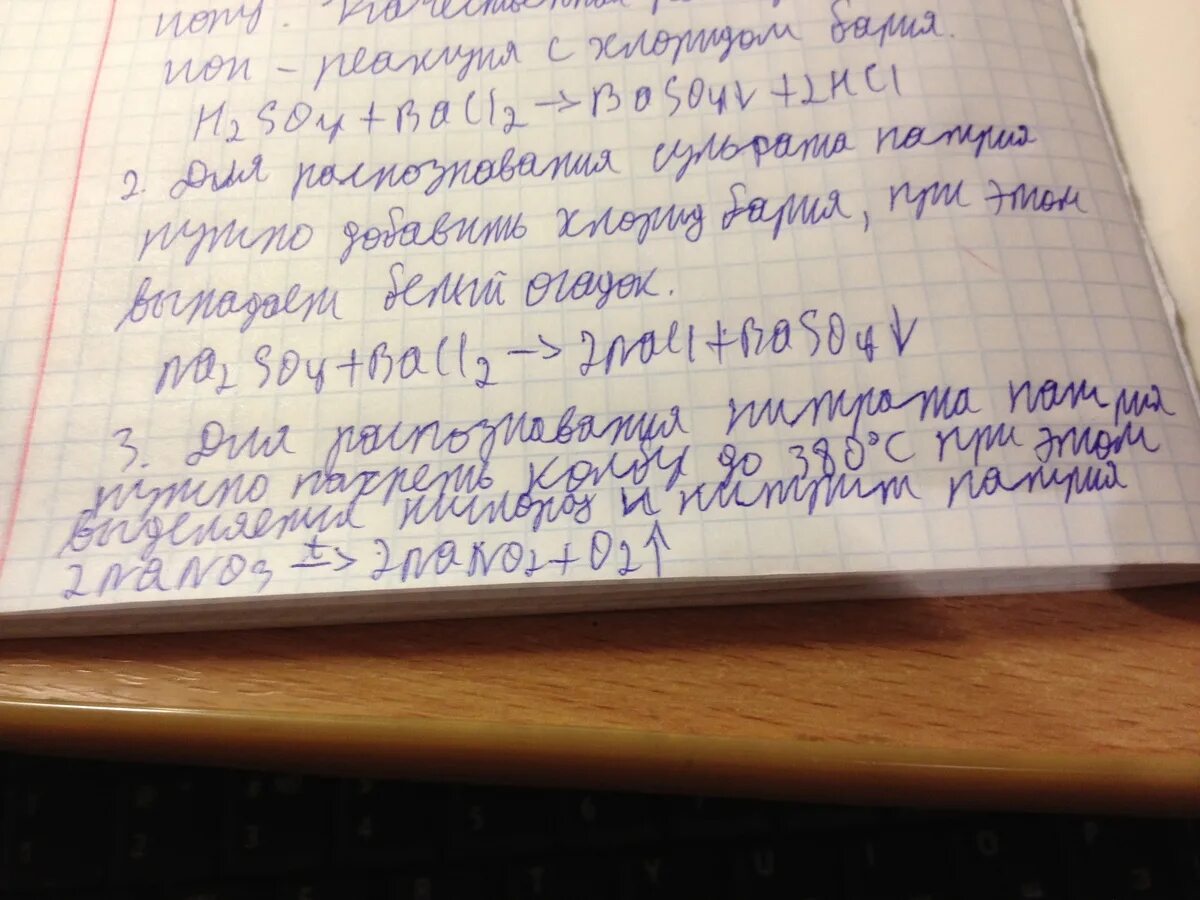 иону. Качественная
ион - реакция с хлоридом бария.
H₂SO₄ + BaCl₂ → BaSO₄↓ + 2HCl
2. Для распознавания сульфата натрия
нужно добавить хлорид бария, при этом
выпадает белый осадок.
Na₂SO₄ + BaCl₂ → 2NaCl + BaSO₄↓
3. Для распознавания нитрата натрия
нужно нахреть колбу до 380°C при этом
выделяется кислород и нитрит натрия
2NaNO₃ t→ 2NaNO₂ + O₂↑